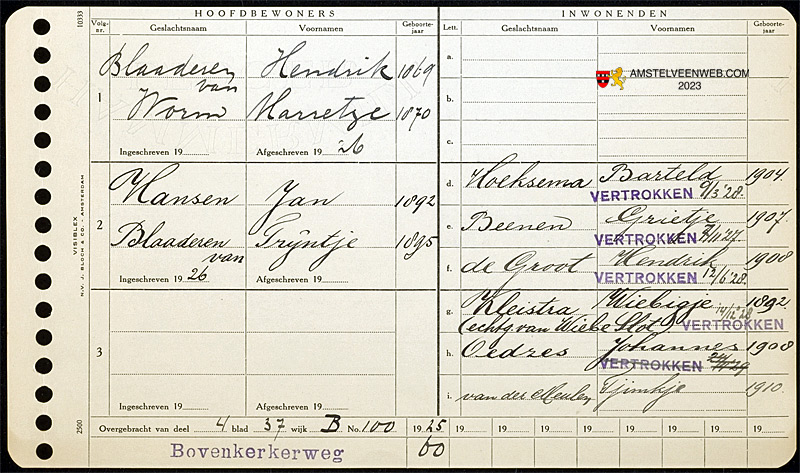 10333
HOOFDBEWONERS
INWONENDEN
Volg-nr.
Geslachtsnaam
Voornamen
Geboorte-jaar
Lett.
Geslachtsnaam
Voornamen
Geboorte-jaar
1
Blaaderen van
Hendrik
1869
Worm
Marretje
1870
Ingeschreven 19
Afgeschreven 19 26
2
Hansen
Jan
1892
Blaaderen van
Trijntje
1895
Ingeschreven 19 26
Afgeschreven 19
3
Ingeschreven 19
Afgeschreven 19
a.
AMSTELVEENWEB.COM
2023
b.
c.
d. Hoeksema Barteld 1904
VERTROKKEN 9/3 '28.
e. Beenen Grietje 1907.
VERTROKKEN
f. de Groot Hendrik 1908
VERTROKKEN 13/6 '28.
g. Kleistra Wiebigje 1892
14/12 '28
(echtg. van Wiebe Slot) VERTROKKEN
h. Oedzes Johannes 1908
VERTROKKEN
i. van der Meulen Tjimkje 1910.
Overgebracht van deel 4 blad 37 wijk B No. 100
19 25 19 19 19 19 19 19 19 19
Bovenkerkerweg
60
VISIBLEX
N.V. J. BLOCH & CO. - AMSTERDAM
2500